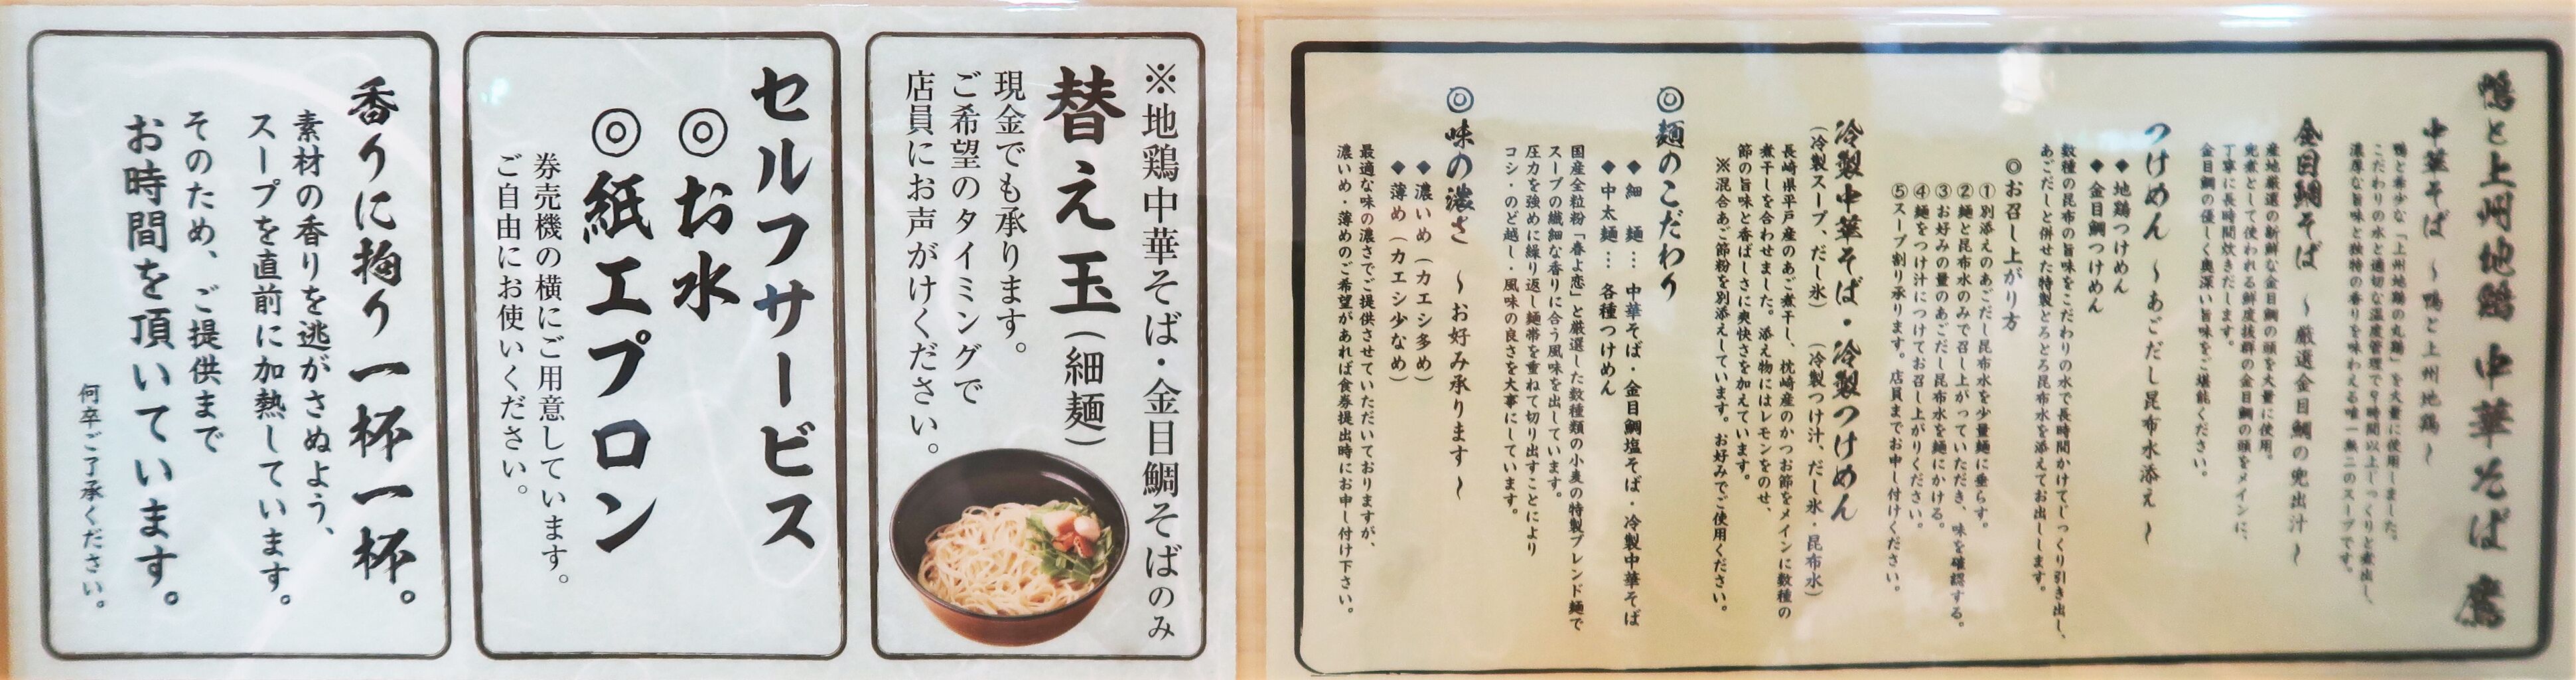 鴨と上州地鶏 中華そば 鷹
中華そば 〜鴨と上州地鶏〜
鴨と希少な「上州地鶏の丸鶏」を大量に使用しました。
こだわりの水と適切な温度管理で9時間以上じっくりと煮出し、
濃厚な旨味と独特の香りを味わえる唯一無二のスープです。
金目鯛そば 〜厳選金目鯛の兜出汁〜
産地厳選の新鮮な金目鯛の頭を大量に使用。
兜煮として使われる鮮度抜群の金目鯛の頭をメインに、
丁寧に長時間炊きだします。
金目鯛の優しく奥深い旨味をご堪能ください。
つけめん 〜あごだし昆布水添え〜
◆地鶏つけめん
◆金目鯛つけめん
数種の昆布の旨味をこだわりの水で長時間かけてじっくり引き出し、
あごだしと併せた特製とろとろ昆布水を添えてお出しします。
◎お召し上がり方
①別添えのあごだし昆布水を少量麺に垂らす。
②麺と昆布水のみで召し上がっていただき、味を確認する。
③お好みの量のあごだし昆布水を麺にかける。
④麺をつけ汁につけてお召し上がりください。
⑤スープ割り承ります。店員までお申し付けください。
冷製中華そば・冷製つけめん
(冷製スープ、だし氷) (冷製つけ汁、だし氷・昆布水)
長崎県平戸産のあご煮干し、枕崎産のかつお節をメインに数種の
煮干しを合わせました。添え物にはレモンをのせ、
節の旨味と香ばしさに爽快さを加えています。
※混合あご節粉を別添えしています。お好みでご使用ください。
◎麺のこだわり
◆細 麺… 中華そば・金目鯛塩そば・冷製中華そば
◆中太麺… 各種つけめん
国産全粒粉「春よ恋」と厳選した数種類の小麦の特製ブレンド麺で
スープの繊細な香りに合う風味を出しています。
圧力を強めに繰り返し麺帯を重ねて切り出すことにより
コシ・のど越し・風味の良さを大事にしています。
◎味の濃さ 〜お好み承ります〜
◆濃いめ(カエシ多め)
◆薄め(カエシ少なめ)
最適な味の濃さでご提供させていただいておりますが、
濃いめ・薄めのご希望があれば食券提出時にお申し付け下さい。
※地鶏中華そば・金目鯛そばのみ
替え玉(細麺)
現金でも承ります。
ご希望のタイミングで
店員にお声がけください。
セルフサービス
◎お水
◎紙エプロン
券売機の横にご用意しています。
ご自由にお使いください。
香りに拘り一杯一杯。
素材の香りを逃がさぬよう、
スープを直前に加熱しています。
そのため、ご提供まで
お時間を頂いています。
何卒ご了承ください。